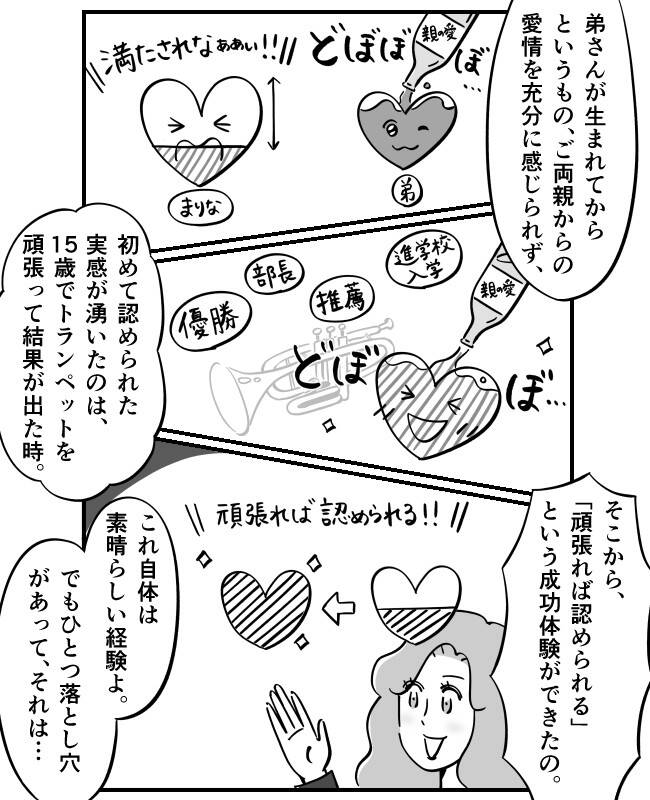 弟さんが生まれてから
というもの、ご両親からの
愛情を充分に感じられず、
親の愛
どぼぼぼ…
満たされなぁぁぃ!!
弟
まりな
進学校
入学
推薦
部長
優勝
親の愛
どぼぼ…
初めて認められた
実感が湧いたのは、
15歳でトランペットを
頑張って結果が出た時。
そこから、
「頑張れば認められる」
という成功体験ができたの。
頑張れば認められる!!
これ自体は
素晴らしい経験よ。
でもひとつ落とし穴
があって、それは…